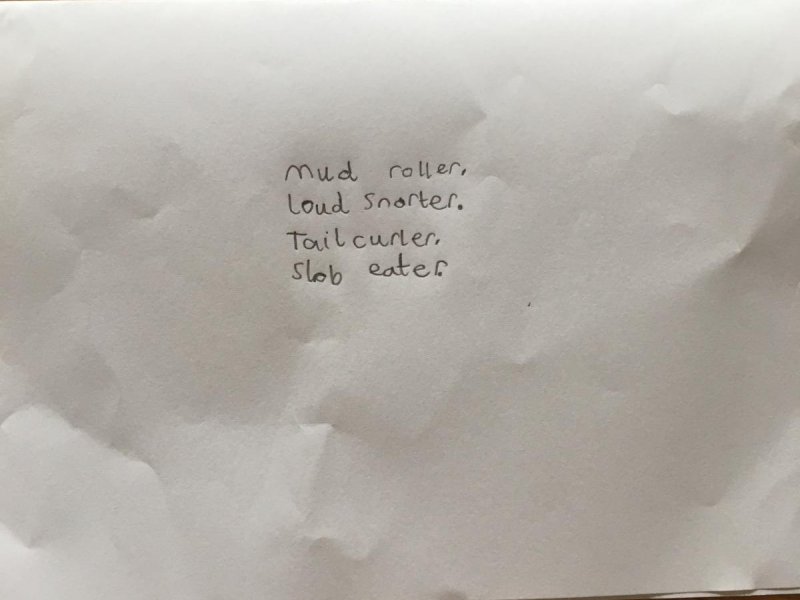 Mud roller.
Loud Snorter.
Tail curler.
Slob eater.